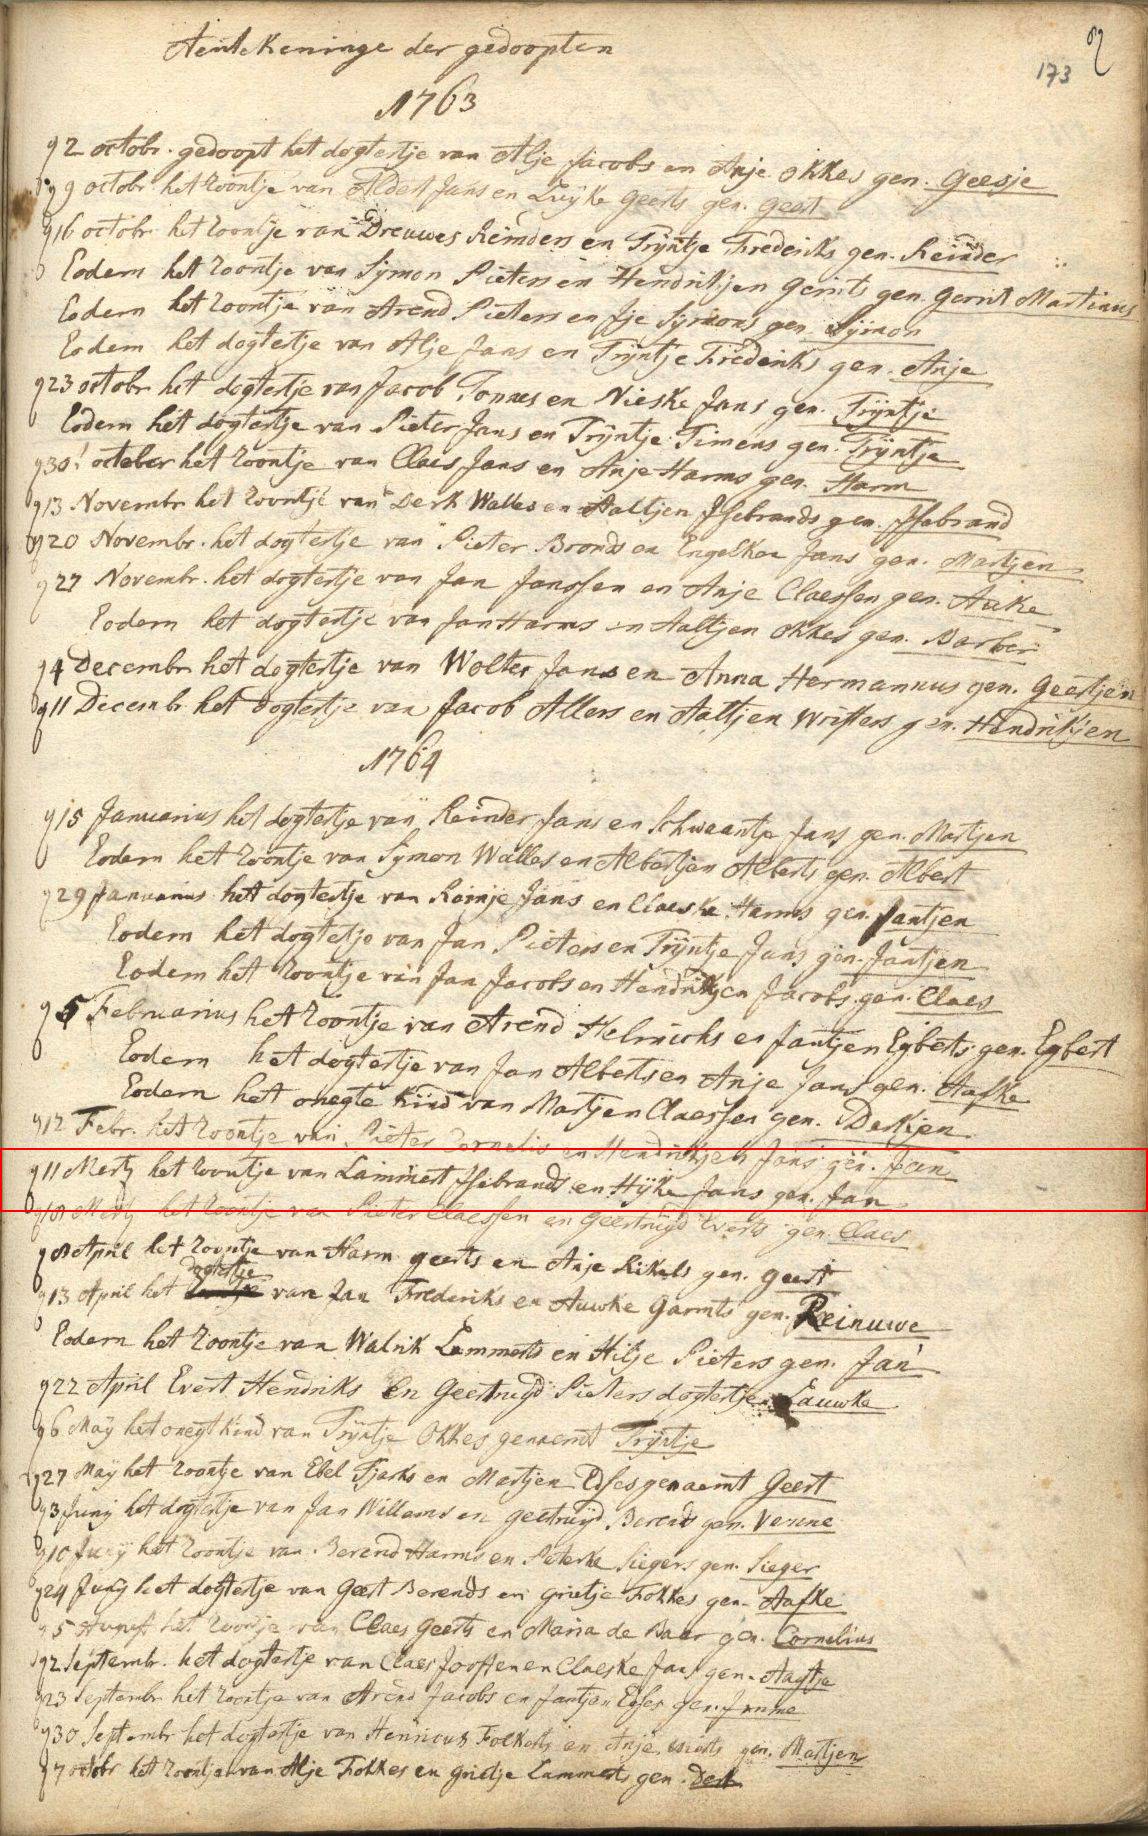 Aentekeninge der gedoopten
173
1763
2 octobr. gedoopt het dogtertje van Alje Jacobs en Anje Okkes gen. Geesje
9 octobr het zoontje van Aldert Jans en Luijke Geerts gen. Geert
16 octobr het zoontje van Dreuwes Reinders en Trijntje Frederiks gen. Reinder
Eodem het zoontje van Sijmon Pieters en Hendrikjen Gerrits gen. Gerrit Martinus
Eodem het zoontje van Arend Pieters en Sijmons gen. Sijmon
Eodem het dogtertje van Alje Jans en Trijntje Frederiks gen. Anje
23 octobr het dogtertje van Jacob Tonnes en Nieske Jans gen. Trijntje
Eodem het dogtertje van Pieter Jans en Trijntje Timens gen. Trijntje
30 october het zoontje van Claes Jans en Anje Harms gen. Harm
13 Novembr het zoontje van Derk Walles en Aaltjen Jsebrands gen. Jsebrand
20 Novembr. het dogtertje van Pieter Bronds en Engelkee Jans gen. Martjen
27 Novembr. het dogtertje van Jan Janssen en Anje Claessen gen. Auke
Eodem het dogtertje van Jan Harms en Aaltjen Okkes gen. Barber
4 Decembr het dogtertje van Wolter Jans en Anna Hermannus gen. Geertjen
11 Decembr het dogtertje van Jacob Allers en Aaltjen gen. Hendrikjen
1764
15 Januarius het dogtertje van Reinder Jans en Schwaantje Jans gen. Martjen
Eodem het zoontje van Sijmon Walles en Albertjen Alberts gen. Albert
29 Januarius het dogtertje van Reinje Jans en Claeske Harms gen. Jantjen
Eodem het dogtertje van Jan Pieters en Trijntje Jans gen. Jantjen
Eodem het zoontje van Jan Jacobs en Hendrikjen Jacobs gen. Claes
5 Februarius het zoontje van Arend Helmichs en Jantjen Egberts gen. Egbert
Eodem het dogtertje van Jan Alberts en Anje Jans gen. Aafke
Eodem het onegte kind van Martjen Claessen gen. Derkjen
12 Febr. het zoontje van Pieter Cornelis en Hendrikjen Jans gen. Jan
11 Merty het zoontje van Lammert Jsebrands en Hijke Jans gen. Jan
18 Merty het zoontje van Pieter Claessen en Geertruijd Everts gen. Claes
8 April het zoontje van Harm Geerts en Anje Rikels gen. Geert
dogtertje
13 April het van Jan Frederiks en Auwke Garmts gen. Reinuwe
Eodem het zoontje van Walrik Lammerts en Hilje Pieters gen. Jan
22 April Evert Hendriks en Geertruijd Pieters dogtertje Lauwke
6 Maij het onegt kind van Trijntje Okkes genaemt Trijntje
27 Maij het zoontje van Ebel Tjarks en Martjen Edses genaemt Geert
3 Junij het dogtertje van Jan Willems en Geertruijd Berends gen. Venne
10 Junij het zoontje van Berend Harms en Peterke Siegers gen. Sieger
24 Junij het dogtertje van Geert Berends en Grietje Fokkes gen. Aafke
5 August het zoontje van Claes Geerts en Maria de Baar gen. Cornelius
2 Septembr. het dogtertje van Claes Joosten en Claeske Jans gen. Aagtje
23 Septembr het zoontje van Arend Jacobs en Jantjen Edses gen.
30 Septembr het dogtertje van Henricus Folkerts en Anje gen. Martjen
7 octobr het zoontje van Alje Fokkes en Grietje Lammerts gen. Derk